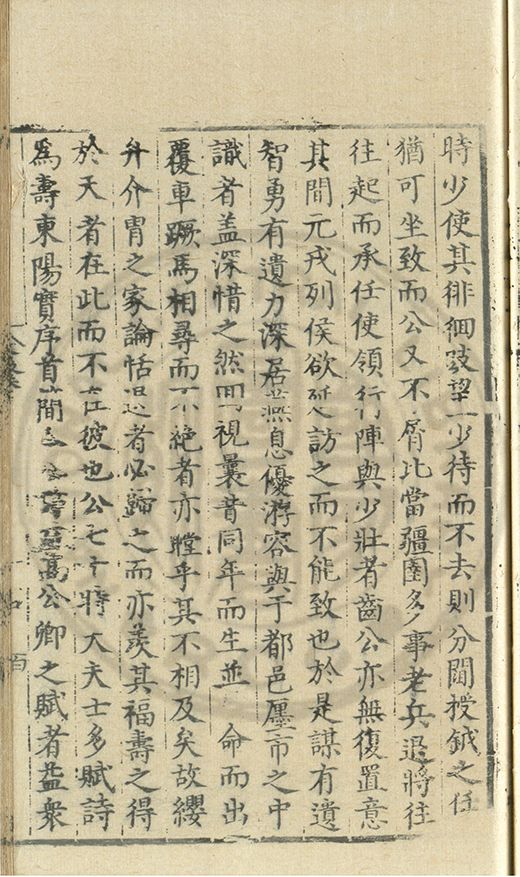 時少使其徘徊跂望一少待而不去則分閫授鉞之任
猶可坐致而公又不屑比當疆圉多事老兵退將往
往起而承任使領行陣與少壯者齒公亦無復置意
其間元戎列侯欲延訪之而不能致也於是謀有遺
智勇有遺力深居燕息優游容與于都邑廛市之中
識者盖深惜之然囬視曩昔同年而生並 命而出
覆車蹶馬相尋而不絕者亦瞠乎其不相及矣故纓
弁介冑之家論恬退者必歸之而亦羨其福壽之得
於天者在此而不在彼也公七十時大夫士多賦詩
為壽東陽實序首簡 公卿之賦者益衆